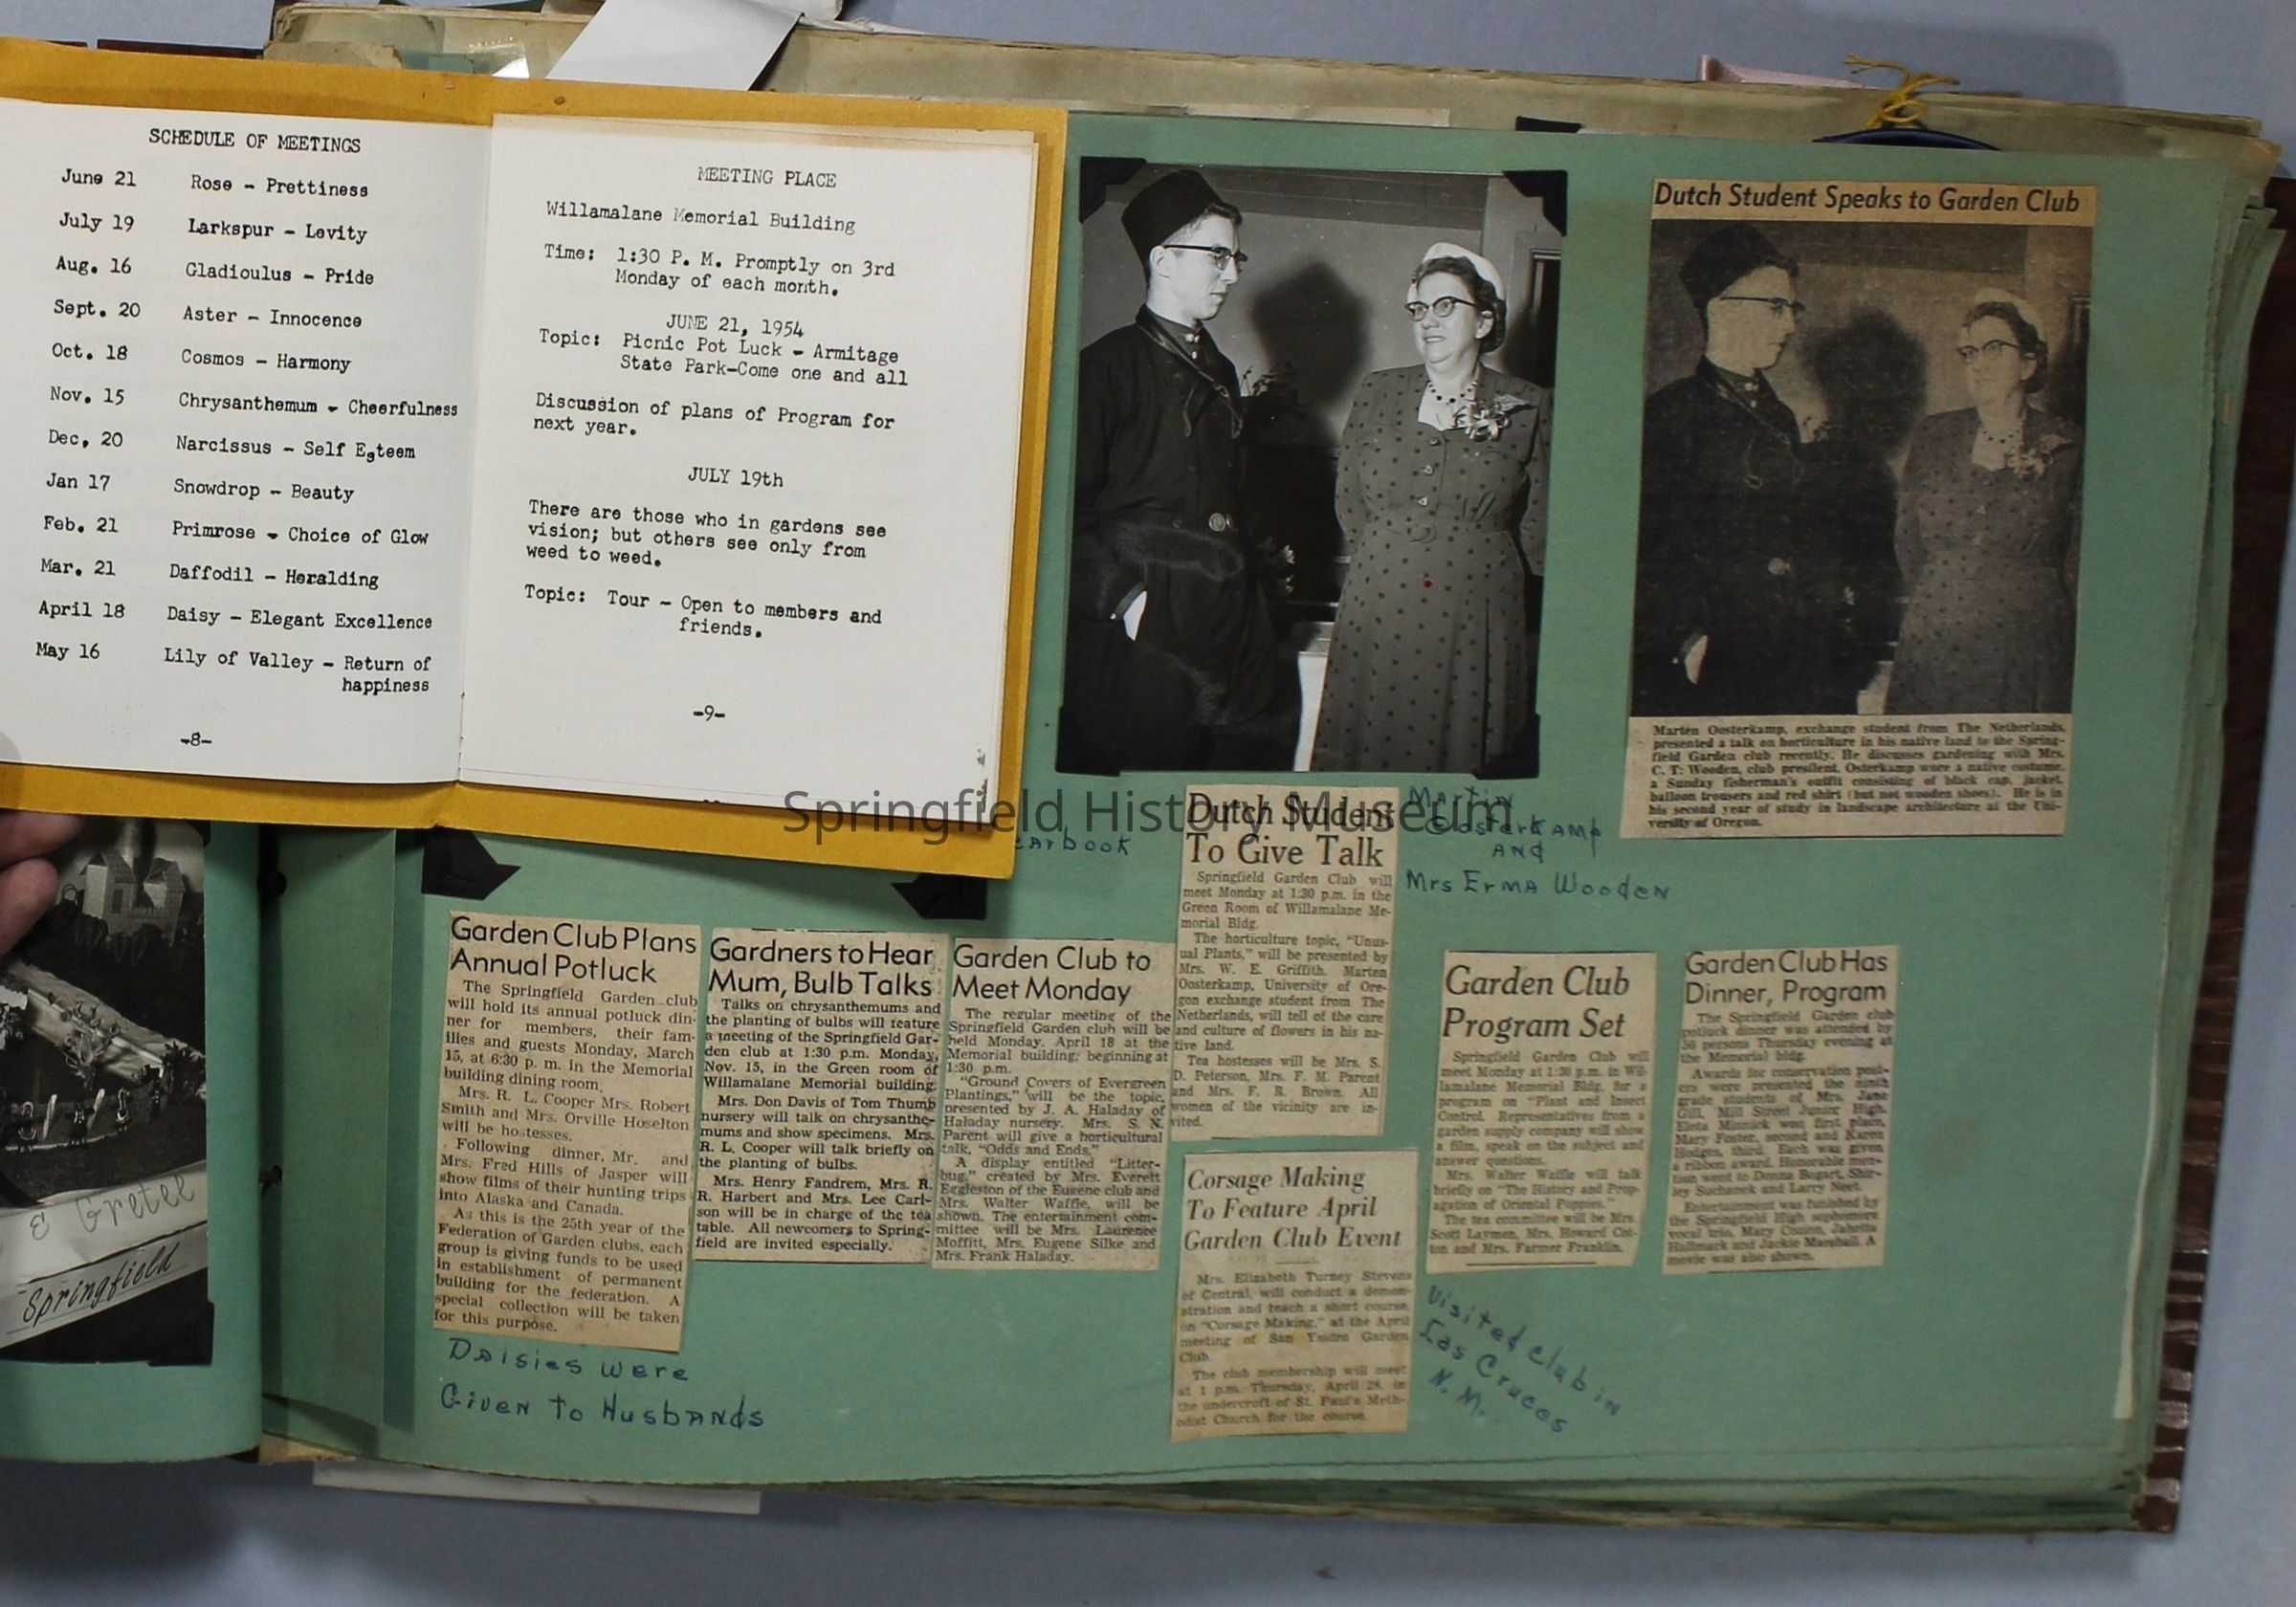 SCHEDULE OF MEETINGS
June 21 Rose - Prettiness
July 19 Larkspur - Levity
Aug. 16 Gladioulus - Pride
Sept. 20 Aster - Innocence
Oct. 18 Cosmos - Harmony
Nov. 15 Chrysanthemum - Cheerfulness
Dec. 20 Narcissus - Self Esteem
Jan 17 Snowdrop - Beauty
Feb. 21 Primrose - Choice of Glow
Mar. 21 Daffodil - Heralding
April 18 Daisy - Elegant Excellence
May 16 Lily of Valley - Return of
happiness
-8-
MEETING PLACE
Willamalane Memorial Building
Time: 1:30 P. M. Promptly on 3rd
Monday of each month.
JUNE 21, 1954
Topic: Picnic Pot Luck - Armitage
State Park-Come one and all
Discussion of plans of Program for
next year.
JULY 19th
There are those who in gardens see
vision; but others see only from
weed to weed.
Topic: Tour - Open to members and
friends.
-9-
Dutch Student Speaks to Garden Club
Marten Oosterkamp, exchange student from The Netherlands,
presented a talk on horticulture in his native land to the Spring-
field Garden club recently. He discusses gardening with Mrs.
C. T. Wooden, club president. Osterkamp wore a native costume,
a Sunday fisherman's outfit consisting of black cap, jacket,
balloon trousers and red shirt (but not wooden shoes). He is in
his second year of study in landscape architecture at the Uni-
versity of Oregon.
Springfield History Museum
earbook
Martin
Oosterkamp
AND
Mrs Erma Wooden
& Gretel
Springfield
Garden Club Plans
Annual Potluck
The Springfield Garden club
will hold its annual potluck din-
ner for members, their fam-
ilies and guests Monday, March
15, at 6:30 p. m. in the Memorial
building dining room.
Mrs. R. L. Cooper Mrs. Robert
Smith and Mrs. Orville Hoselton
will be hostesses.
Following dinner, Mr. and
Mrs. Fred Hills of Jasper will
show films of their hunting trips
into Alaska and Canada.
As this is the 25th year of the
Federation of Garden clubs, each
group is giving funds to be used
in establishment of permanent
building for the federation. A
special collection will be taken
for this purpose.
Daisies were
Given to Husbands
Gardners to Hear
Mum, Bulb Talks
Talks on chrysanthemums and
the planting of bulbs will feature
a meeting of the Springfield Gar-
den club at 1:30 p.m. Monday,
Nov. 15, in the Green room of
Willamalane Memorial building.
Mrs. Don Davis of Tom Thumb
nursery will talk on chrysanthe-
mums and show specimens. Mrs.
R. L. Cooper will talk briefly on
the planting of bulbs.
Mrs. Henry Fandrem, Mrs. R.
R. Harbert and Mrs. Lee Carl-
son will be in charge of the tea
table. All newcomers to Spring-
field are invited especially.
Garden Club to
Meet Monday
The regular meeting of the
Springfield Garden club will be
held Monday, April 18 at the
Memorial building; beginning at
1:30 p.m.
"Ground Covers of Evergreen
Plantings," will be the topic,
presented by J. A. Haladay of
Haladay nursery. Mrs. S. N.
Parent will give a horticultural
talk, "Odds and Ends."
A display entitled "Litter-
bug," created by Mrs. Everett
Eggleston of the Eugene club and
Mrs. Walter Waffle, will be
shown. The entertainment com-
mittee will be Mrs. Laurence
Moffitt, Mrs. Eugene Silke and
Mrs. Frank Haladay.
Dutch Student
To Give Talk
Springfield Garden Club will
meet Monday at 1:30 p.m. in the
Green Room of Willamalane Me-
morial Bldg.
The horticulture topic, "Unus-
ual Plants," will be presented by
Mrs. W. E. Griffith. Marten
Oosterkamp, University of Ore-
gon exchange student from The
Netherlands, will tell of the care
and culture of flowers in his na-
tive land.
Tea hostesses will be Mrs. S.
D. Peterson, Mrs. F. M. Parent
and Mrs. F. R. Brown. All
women of the vicinity are in-
vited.
Corsage Making
To Feature April
Garden Club Event
Mrs. Elizabeth Turney Stevens
of Central, will conduct a demon-
stration and teach a short course,
on "Corsage Making," at the April
meeting of San Ysidro Garden
Club.
The club membership will meet
at 1 p.m. Thursday, April 28, in
the undercroft of St. Paul's Meth-
odist Church for the course.
Garden Club
Program Set
Springfield Garden Club will
meet Monday at 1:30 p.m. in Wil-
lamalane Memorial Bldg. for a
program on "Plant and Insect
Control. Representatives from a
garden supply company will show
a film, speak on the subject and
answer questions.
Mrs. Walter Waffle will talk
briefly on "The History and Prop-
agation of Oriental Poppies."
The tea committee will be Mrs.
Scott Laymen, Mrs. Howard Cot-
ton and Mrs. Farmer Franklin.
Visited club in
Las Cruces
N. M.
Garden Club Has
Dinner, Program
The Springfield Garden club
potluck dinner was attended by
50 persons Thursday evening at
the Memorial bldg.
Awards for conservation post-
ers were presented the ninth
grade students of Mrs. Jane
Gill, Mill Street Junior High.
Eleta Minnick won first place,
Mary Foster, second and Karen
Hodges, third. Each was given
a ribbon award. Honorable men-
tion went to Donna Bogart, Shir-
ley Suchanek and Larry Neet.
Entertainment was funished by
the Springfield High sophomore
vocal trio, Mary Couson, Jahetta
Hallmark and Jackie Marshall. A
movie was also shown.